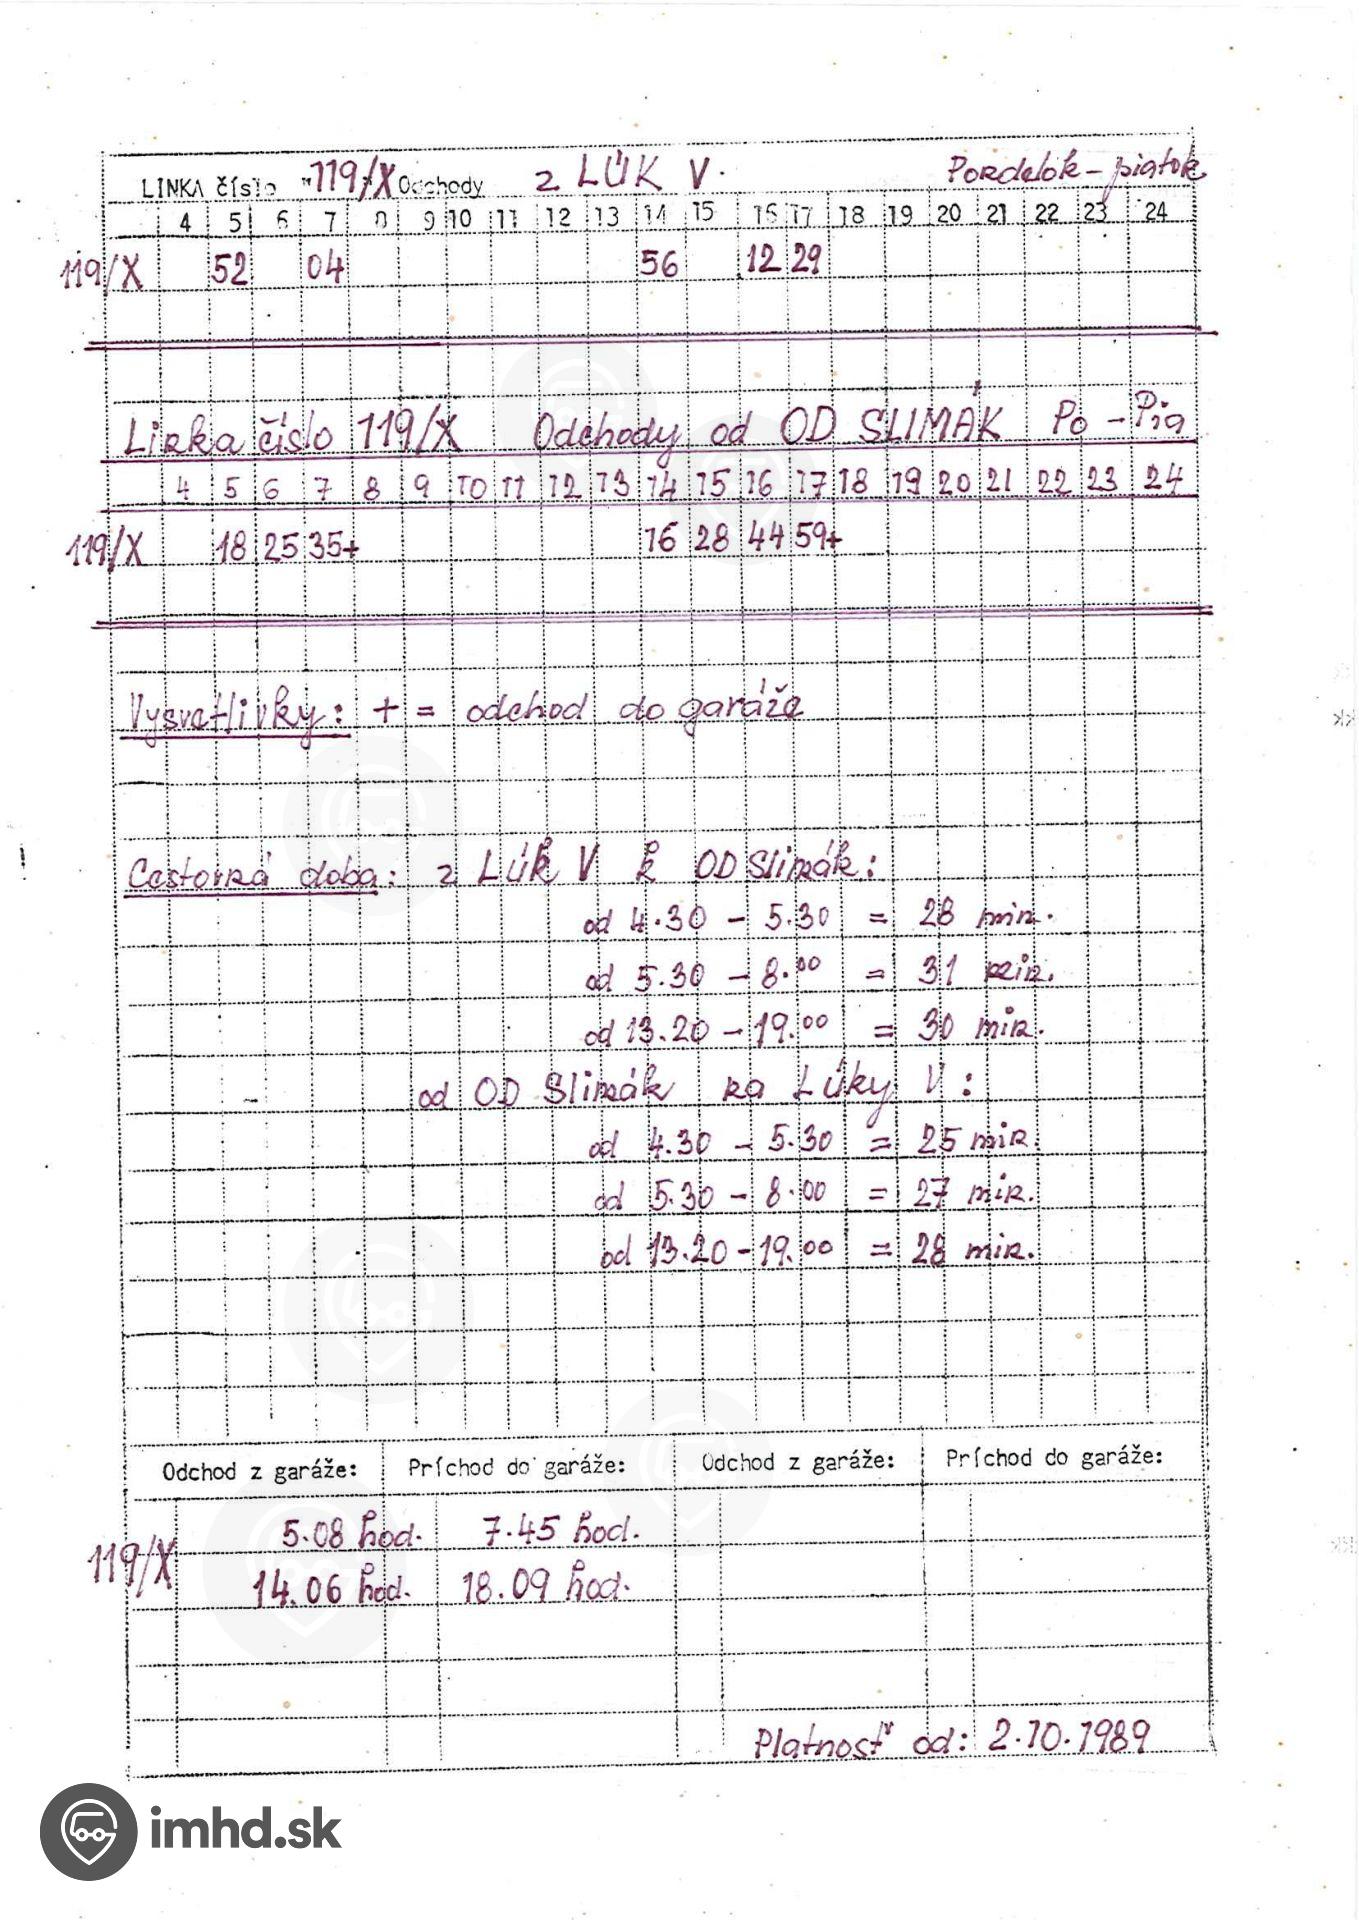 LINKA číslo "119/X" Odchody z LÚK V. Pondelok - piatok
4 5 6 7 8 9 10 11 12 13 14 15 16 17 18 19 20 21 22 23 24
119/X 52 04 56 12 29
Linka číslo 119/X Odchody od OD SLIMÁK Po - Pia
4 5 6 7 8 9 10 11 12 13 14 15 16 17 18 19 20 21 22 23 24
119/X 18 25 35+ 16 28 44 59+
Vysvetlivky: + = odchod do garáže
Cestovná doba: z LÚK V k OD Slimák:
od 4.30 - 5.30 = 28 min.
od 5.30 - 8.00 = 31 min.
od 13.20 - 19.00 = 30 min.
od OD Slimák na Lúky V:
od 4.30 - 5.30 = 25 min.
od 5.30 - 8.00 = 27 min.
od 13.20 - 19.00 = 28 min.
Odchod z garáže: Príchod do garáže: Odchod z garáže: Príchod do garáže:
119/X 5.08 hod. 7.45 hod.
14.06 hod. 18.09 hod.
Platnosť od: 2.10.1989
imhd.sk